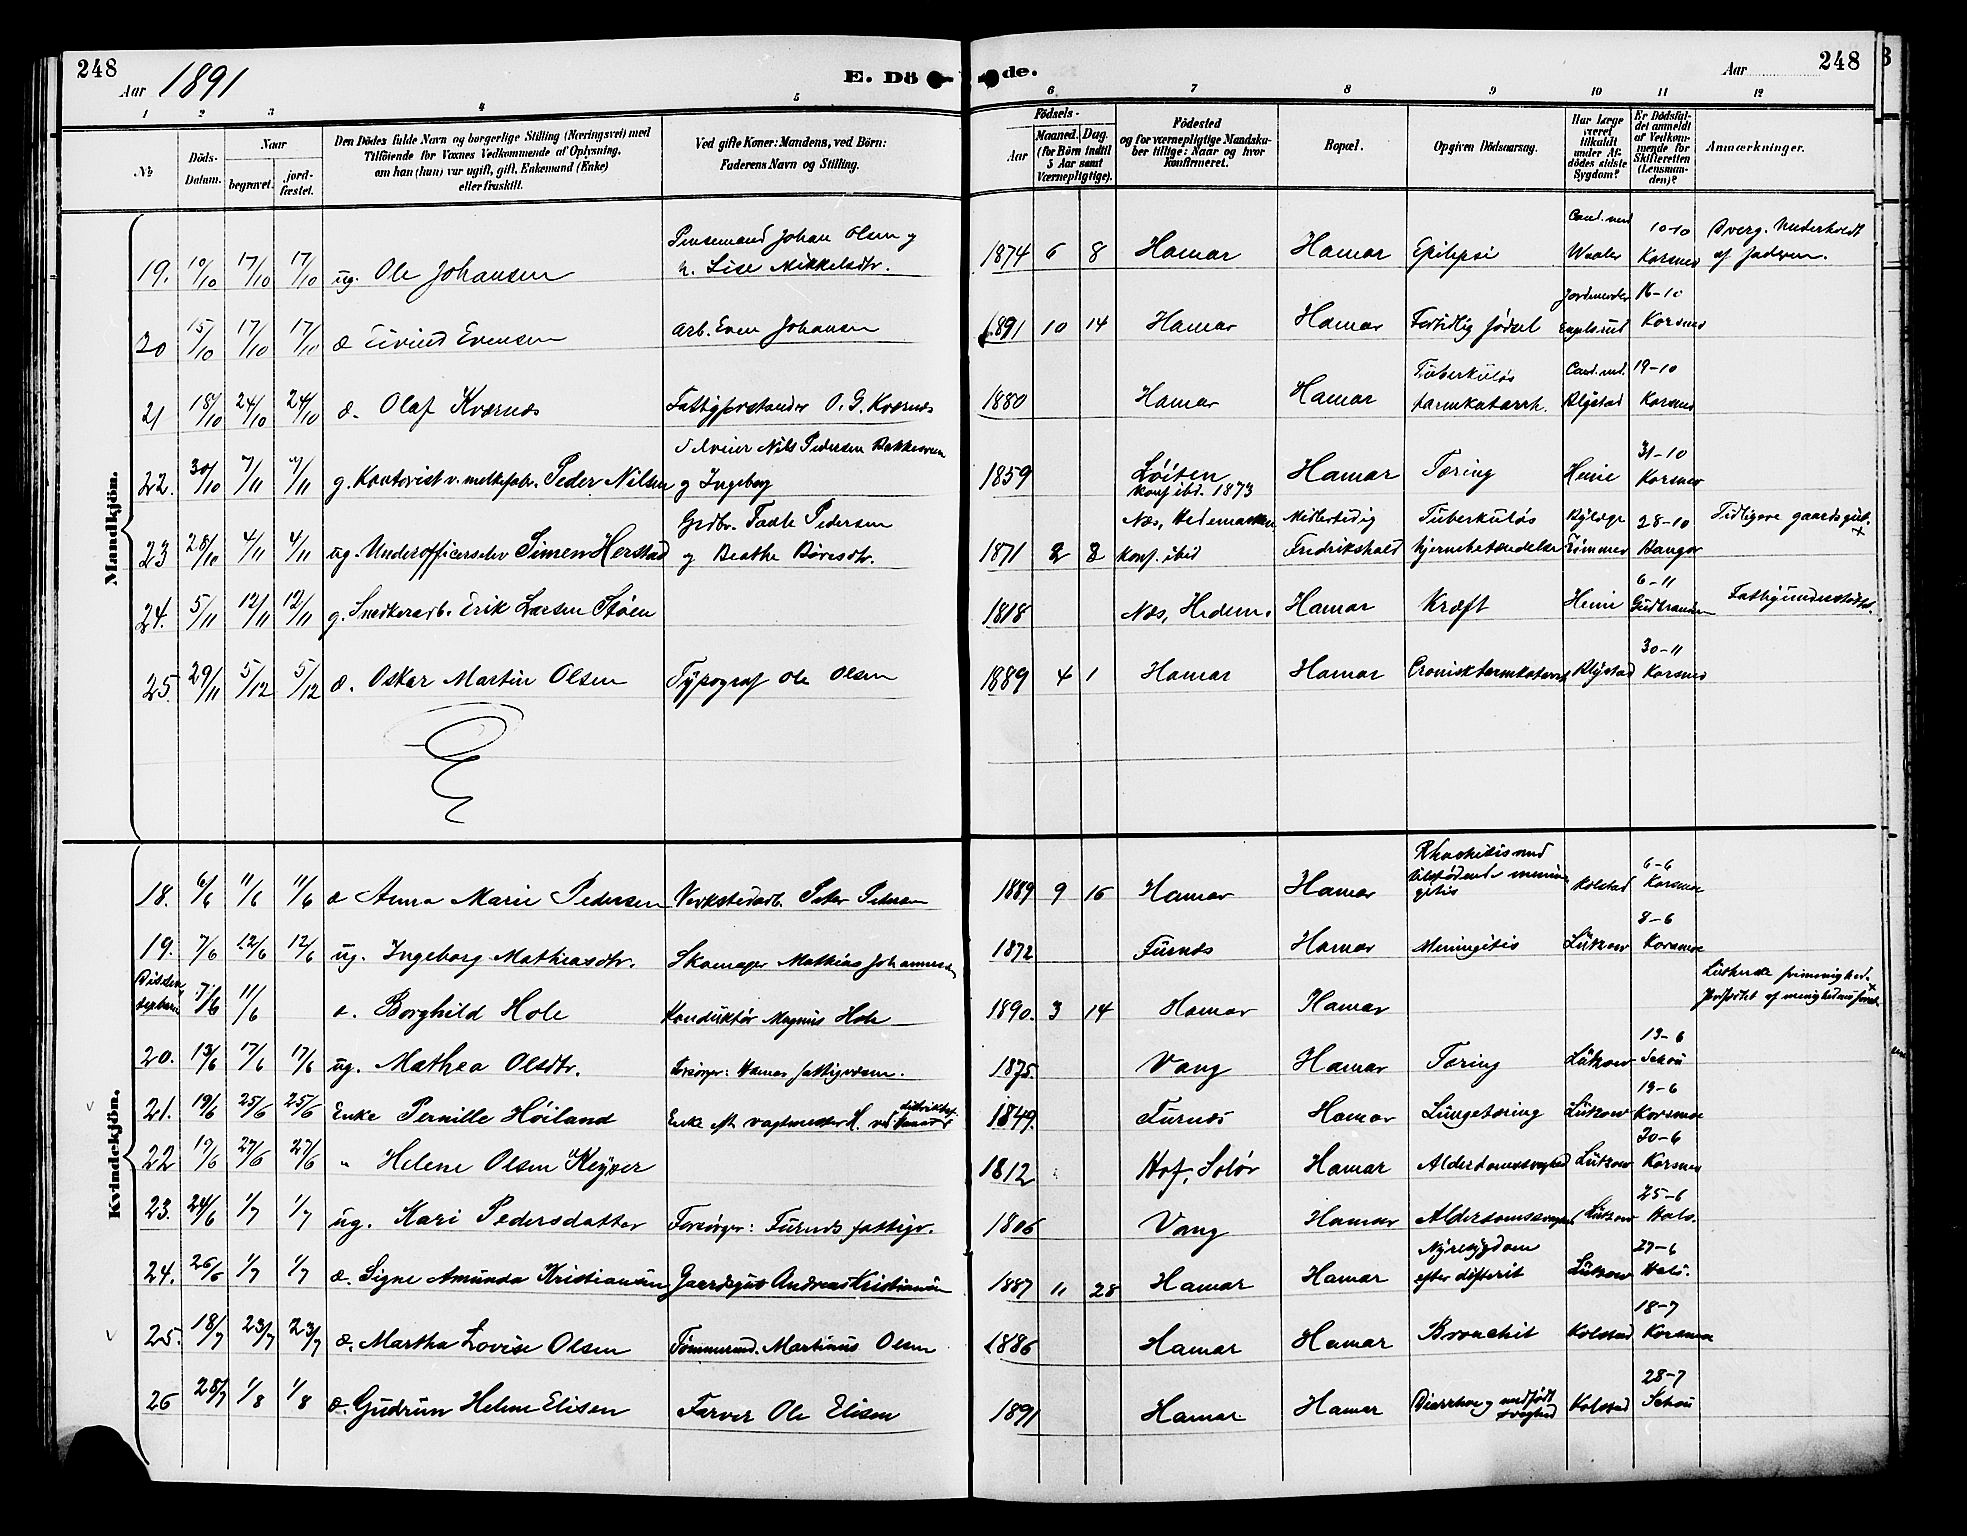 248
Aar 1891
E. Dö
de.
Aar
248
1 2 3 4 5 6 7 8 9 10 11 12
№
Döds-Datum.
Naar
begravet.
jord-fæstet.
Den Dödes fulde Navn og borgerlige Stilling (Næringsvei) med
Tilföiende for Voxnes Vedkommende af Oplysning,
om han (hun) var ugift, gift, Enkemand (Enke)
eller fraskilt.
Ved gifte Koner: Mandens, ved Börn:
Faderens Navn og Stilling.
Födsels-
Aar
Maaned. Dag.
(for Börn indtil
5 Aar samt
Værnepligtige).
Födested
og for værnepligtige Mandska-
ber tillige: Naar og hvor
Konfirmeret.
Bopæl.
Opgiven Dödsaarsag.
Har Læge
været
tilkaldt
under Af-
dødes sidste
Sygdom?
Er Dødsfal-
det anmeldt
af Vedkom-
mende for
Skifteretten
(Lensman-
den)?
Anmærkninger.
Mandkjön.
19. 10/10 17/10 17/10 ug. Ole Johansen Johan Olsen g h. Lise Mikkelsdtr. 1874 6 8 Hamar Hamar Epilepsi Cand. med Waaler 10-10 Korsmo Overg. Underholdt af faderen.
20 15/10 17/10 17/10 æ Eivind Evensen arb. Even Johansen 1891 10 14 Hamar Hamar Fortidlig fødsel Jordemoder Englaud 16-10 Korsmo
21 18/10 24/10 24/10 æ. Olaf Kværnæs Fattigforstander O. G. Kværnæs 1880 Hamar Hamar Tuberkuløs tarmkatarrh. Cand. med. Alystad 19-10 Korsmo
22. 30/10 7/11 7/11 g. Kontorist v. melkefabr. Peder Nilsen Selveier Nils Pedersen g Ingeborg 1859 Løiten konf ibd. 1873 Hamar Tæring Heine 31-10 Korsmo
23 28/10 4/11 4/11 ug. Underofficerselev Simen Herstad Grdbr. Pedersen g Beathe Børesdtr. 1871 2 8 Næs, Hedemarken konf. ibid Midlertidig Fredrikshald Tuberkuløs hjernebetændelse 28-10 Tidligere gaardsgut.
24. 5/11 12/11 12/11 g. Snedkerarb. Erik Larsen Støen 1818 Næs, Hedem. Hamar Kræft Heine 6-11 Gudbrandsen Fattigunderstøttet.
25. 29/11 5/12 5/12 æ. Oskar Martin Olsen Typograf Ole Olsen 1889 4 1 Hamar Hamar Cronisk tarmkatarrh Alystad 30-11 Korsmo
Kvindekjön.
18. 6/6 11/6 11/6 æ Anna Marie Pedersen Verkstedarb. Peter Pedersen 1889 9 16 Hamar Hamar Rhachitis med tilstødende meningitis Kolstad 6-6 Korsmo
19. 7/6 12/6 12/6 ug. Ingeborg Mathiasdtr. Skomager Mathias Johannesen 1872 Furnæs Hamar Meningitis Lützow 8-6 Korsmo
7/6 11/6 æ. Borghild Hole Konduktør Magnus Hole 1890. 3 14 Hamar Hamar Lutherske frimenighed. af
20. 13/6 17/6 17/6 ug. Mathea Olsdtr. Forsørger: Hamar fattigvæsen. 1875. Vang Hamar Tæring Lützow 13-6 Schou
21. 19/6 25/6 25/6 Enke Pernille Høiland Enke eft. vagtmester H. ved distrikts 1849. Furnæs Hamar Lungetæring Lützow 19-6 Korsmo
22 19/6 27/6 27/6 " Helene Olsen Keyser 1812 Hof, Solør Hamar Alderdomssvaghed Lützow 20-6 Korsmo
23. 24/6 1/7 1/7 ug. Kari Pedersdatter Forsørger: Furnæs fattigv. 1806 Vang Hamar Alderdomssvaghed Lützow 25-6 Hals.
24. 26/6 1/7 1/7 æ. Signe Amunda Kristiansen Gaardsgut Andreas Kristiansen 1887 11 28 Hamar Hamar Nyresygdom efter difterit Lützow 27-6 Hals.
25. 18/7 23/7 23/7 æ. Martha Lovise Olsen Tømmermd. Martinus Olsen 1886 Hamar Hamar Bronchit Kolstad 18-7 Korsmo
26 28/7 1/8 1/8 æ. Gudrun Helene Elisen Farver Ole Elisen 1891 Hamar Hamar Diarrhoe g medfødt svaghed Kolstad 28-7 Schou